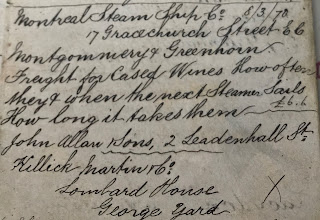 Montreal Steam Ship Co 8/3/70
17 Gracechurch Street EC
Montgommery & Greenhorn X
Freight for Cased Wines How often
they & when the next Steamer Sails
£6.6
How long it takes them
John Allan & Sons, 2 Leadenhall St
Killick Martin & Co
Lombard House
George Yard X